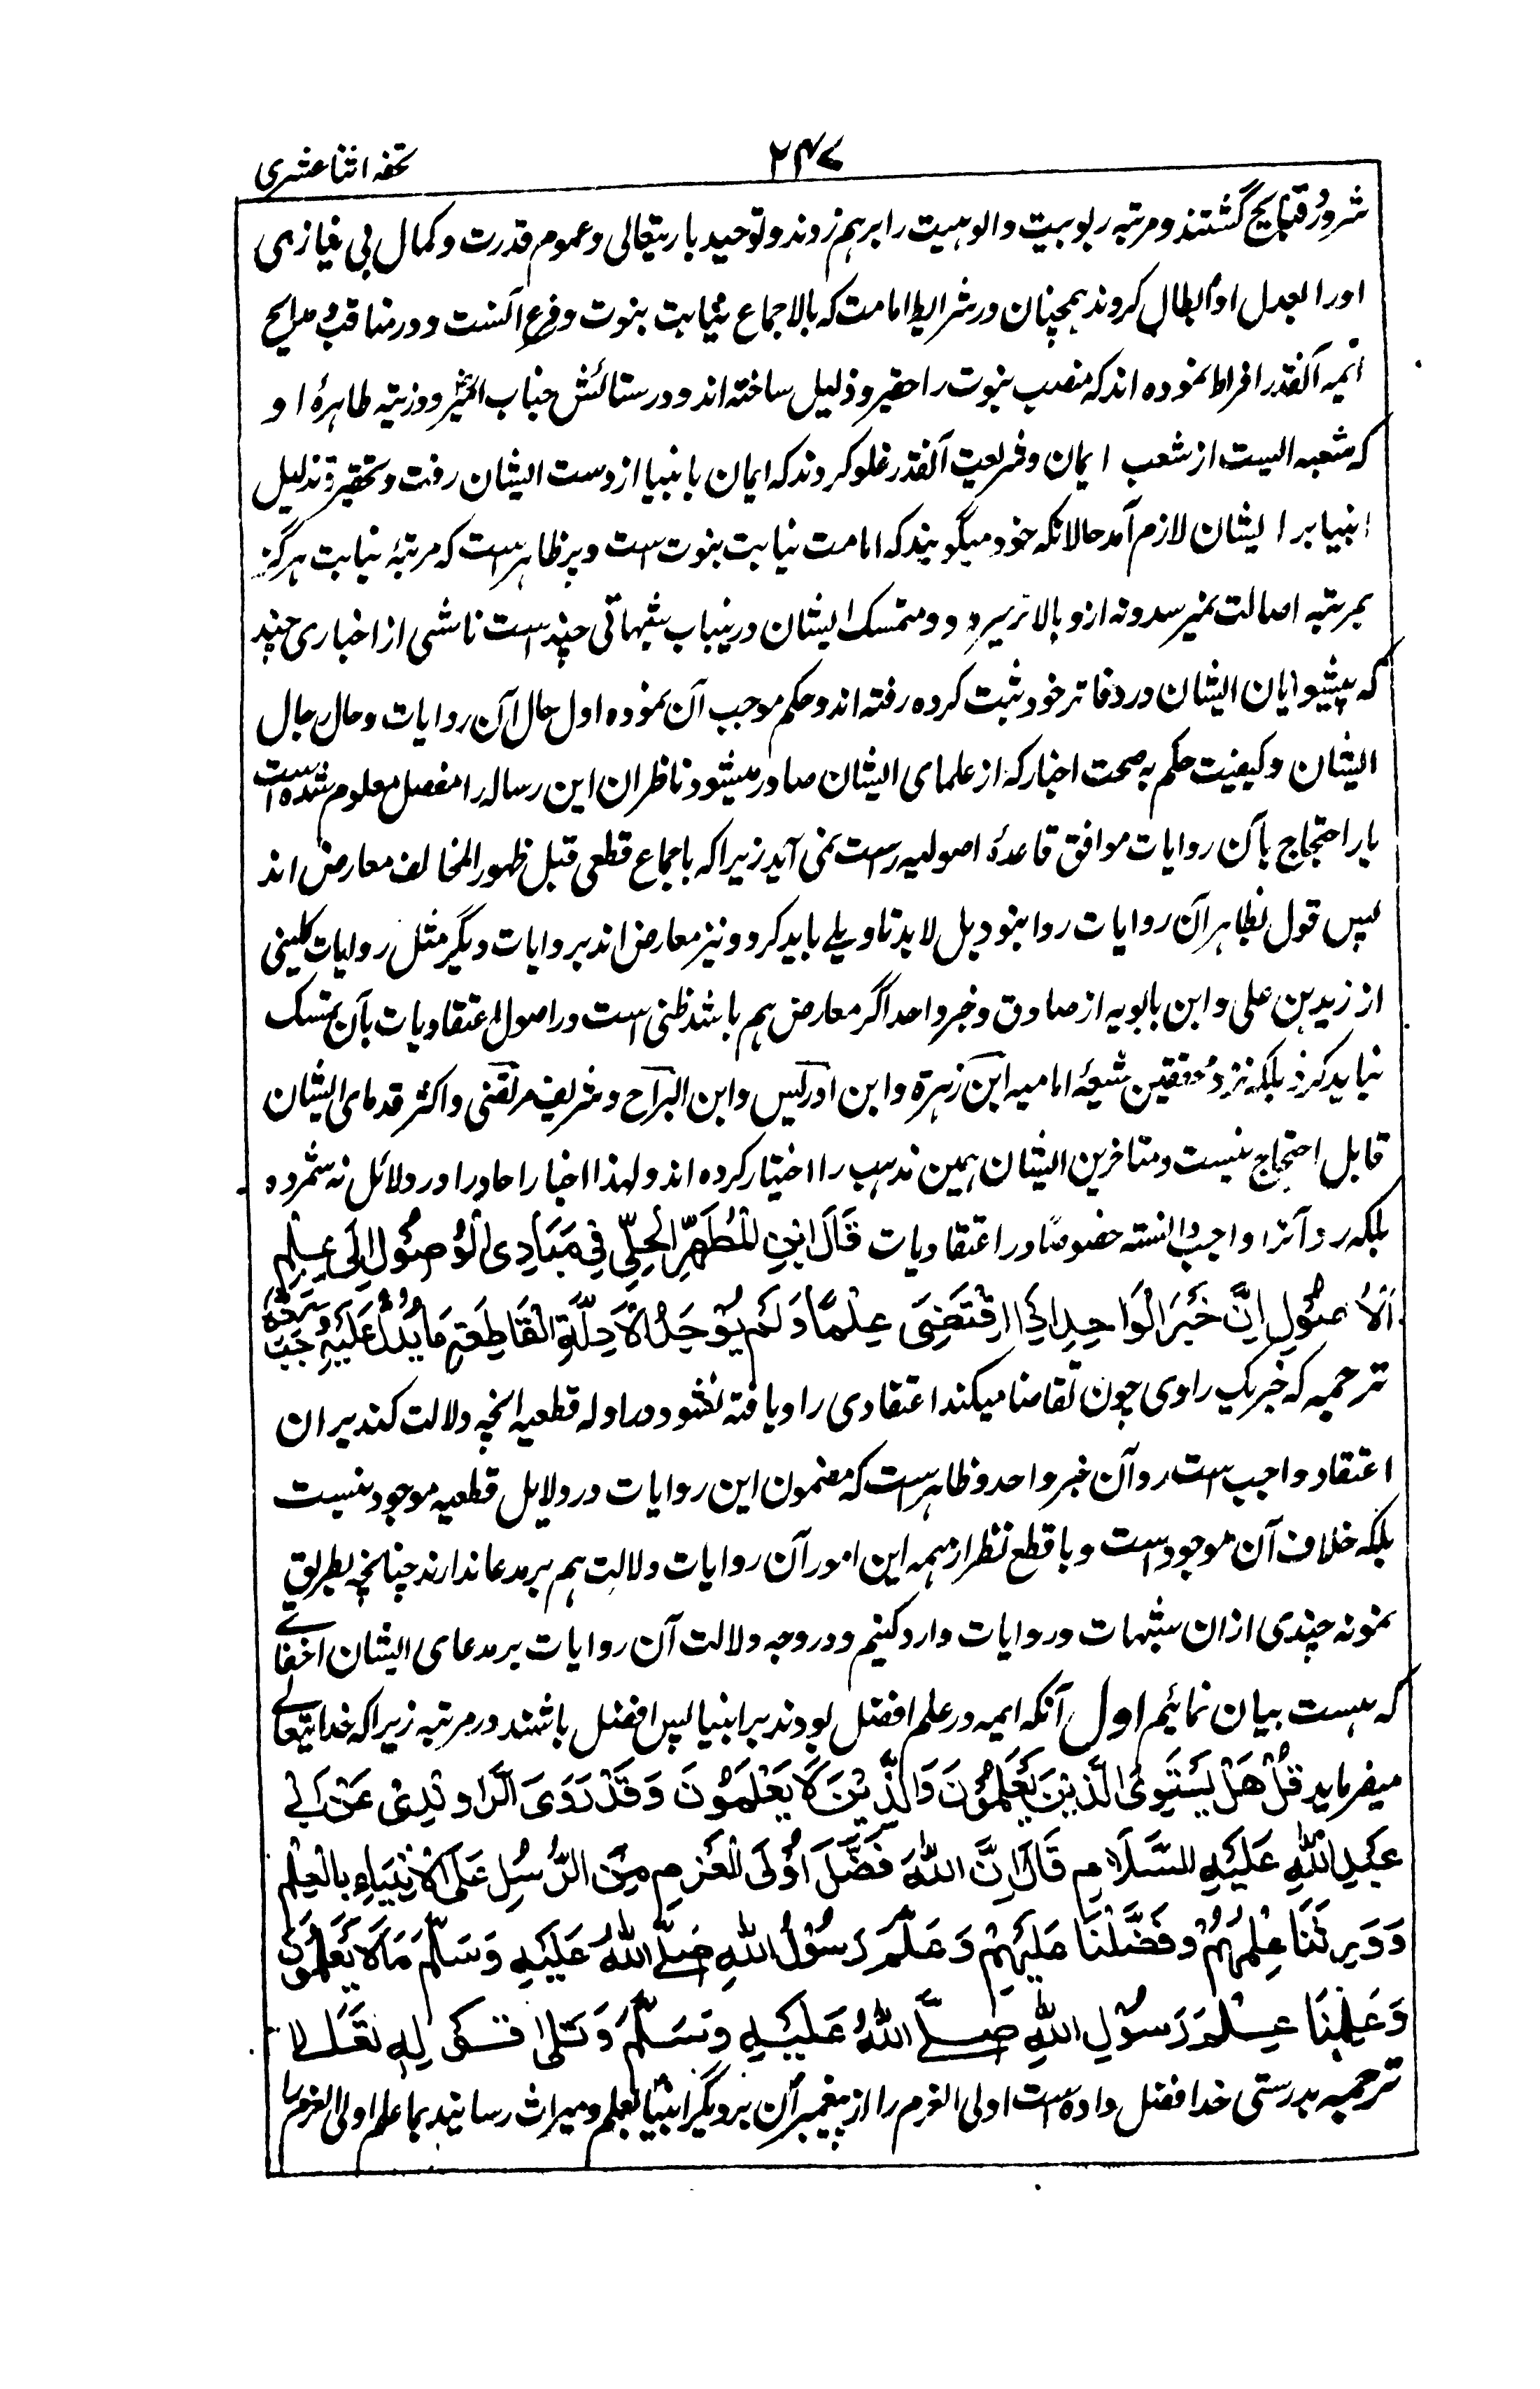 ۲۴۷
تحفه اثنا عشری
شرور و قبایح گشتند و مرتبه ربوبیت و الوهیت را برهم زدند و توحید باریتعالی و عموم قدرت و کمال بی نیازی
او را بعدل او ابطال کردند همچنان در شرایط امامت که بالاجماع نیابت نبوت و فرع آنست و در مناقب و مدایح
ائمه آنقدر افراط نموده اند که منصب نبوت را حقیر و ذلیل ساخته اند و در ستائش جناب امیر و ذریته طاهرهٔ او
که شعبه الیست از شعب ایمان و شریعت آنقدر غلو کردند که ایمان بانبیا از دست ایشان رفت و تحقیر و تذلیل
انبیا بر ایشان لازم آمد حالانکه خود میگویند که امامت نیابت نبوت است و پر ظاهر است که مرتبهٔ نیابت هرگز
بمرتبه اصالت نمیرسد و نه ازو بالاتر میرود و متمسک ایشان درینباب شبهاتی چند است ناشی از اخباری چند
که پیشوایان ایشان در دفاتر خود ثبت کرده رفته اند و حکم موجب آن نموده اول حال آن روایات و حال رجال
ایشان و کیفیت حکم به صحت اخبار که از علمای ایشان صادر میشود ناظران این رساله را مفصل معلوم شده است
بار احتجاج بآن روایات موافق قاعدهٔ اصولیه راست نمی آید زیرا که باجماع قطعی قبل ظهور المخالف معارض اند
پس قول بظاهر آن روایات روا نبود بل لابد تاویلے باید کرد و نیز معارض اند بروایات دیگر مثل روایات کلینی
از زید بن علی و ابن بابویه از صادق و خبر واحد اگر معارض هم باشد ظنی است در اصول اعتقادیات بآن تمسک
نباید کرد بلکه نزد محققین شیعهٔ امامیه ابن زهرة و ابن ادریس و ابن البراح و شریف مرتضی و اکثر قدمای ایشان
قابل احتجاج نیست و متاخرین ایشان همین مذهب را اختیار کرده اند و لهذا اخبار احاد را در دلائل نه شمرده
بلکه رد آنرا واجب دانسته خصوصًا در اعتقادیات قَالَ ابْنُ الْمُطَهَّرِ الْحِلِّي فِي مَبَادِی الْوُصُولِ إِلَی عِلْمِ
الْأُصُولِ إِنَّ خَبَرَ الْوَاحِدِ إِذَا اقْتَضَی عِلْمًا وَلَمْ يُوْجَدْ فِي الْأَدِلَّةِ الْقَاطِعَةِ مَا يَدُلُّ عَلَيْهِ وَجَبَ رَدُّهُ
ترجمه که خبر یک راوی چون تقاضا میکند اعتقادی را و یافته نشود در ادله قطعیه انچه دلالت کند بر ان
اعتقاد واجب است رد آن خبر واحد و ظاهر است که مضمون این روایات در دلایل قطعیه موجود نیست
بلکه خلاف آن موجود است و با قطع نظر از همه این امور آن روایات دلالت هم بر مدعا ندارند چنانچه بطریق
نمونه چندی از ان شبهات و روایات وارد کنیم و در وجه دلالت آن روایات بر مدعای ایشان اخفائے
که هست بیان نمائیم اول آنکه ایمه در علم افضل بودند بر انبیا پس افضل باشند در مرتبه زیرا که خدایتعالے
میفرماید قُلْ هَلْ يَسْتَوِی الَّذِيْنَ يَعْلَمُوْنَ وَالَّذِيْنَ لَا يَعْلَمُوْنَ وَقَدْ رَوَی الرَّاوَنْدِیْ عَنْ أَبِي
عَبْدِ اللّٰهِ عَلَيْهِ السَّلَامِ قَالَ إِنَّ اللّٰهَ فَضَّلَ أُولِی الْعَزْمِ مِنَ الرُّسُلِ عَلَی الْأَنْبِيَاءِ بِالْعِلْمِ
وَوَرِثْنَا عِلْمَهُمْ وَفَضَّلْنَا عَلَيْهِمْ وَعَلَّمَ رَسُوْلُ اللّٰهِ صَلَّے اللّٰهُ عَلَيْهِ وَسَلَّمَ مَا لَا يَعْلَمُوْنَ
وَعَلِمْنَا عِلْمَ رَسُوْلِ اللّٰهِ صَلَّے اللّٰهُ عَلَيْهِ وَسَلَّمَ وَتَلَی قَوْلِهِ تَعَالَے
ترجمه بدرستی خدا فضل داده است اولی العزم را از پیغمبران بر دیگر انبیا بعلم و میراث رسانید بما علم اولی العزم را